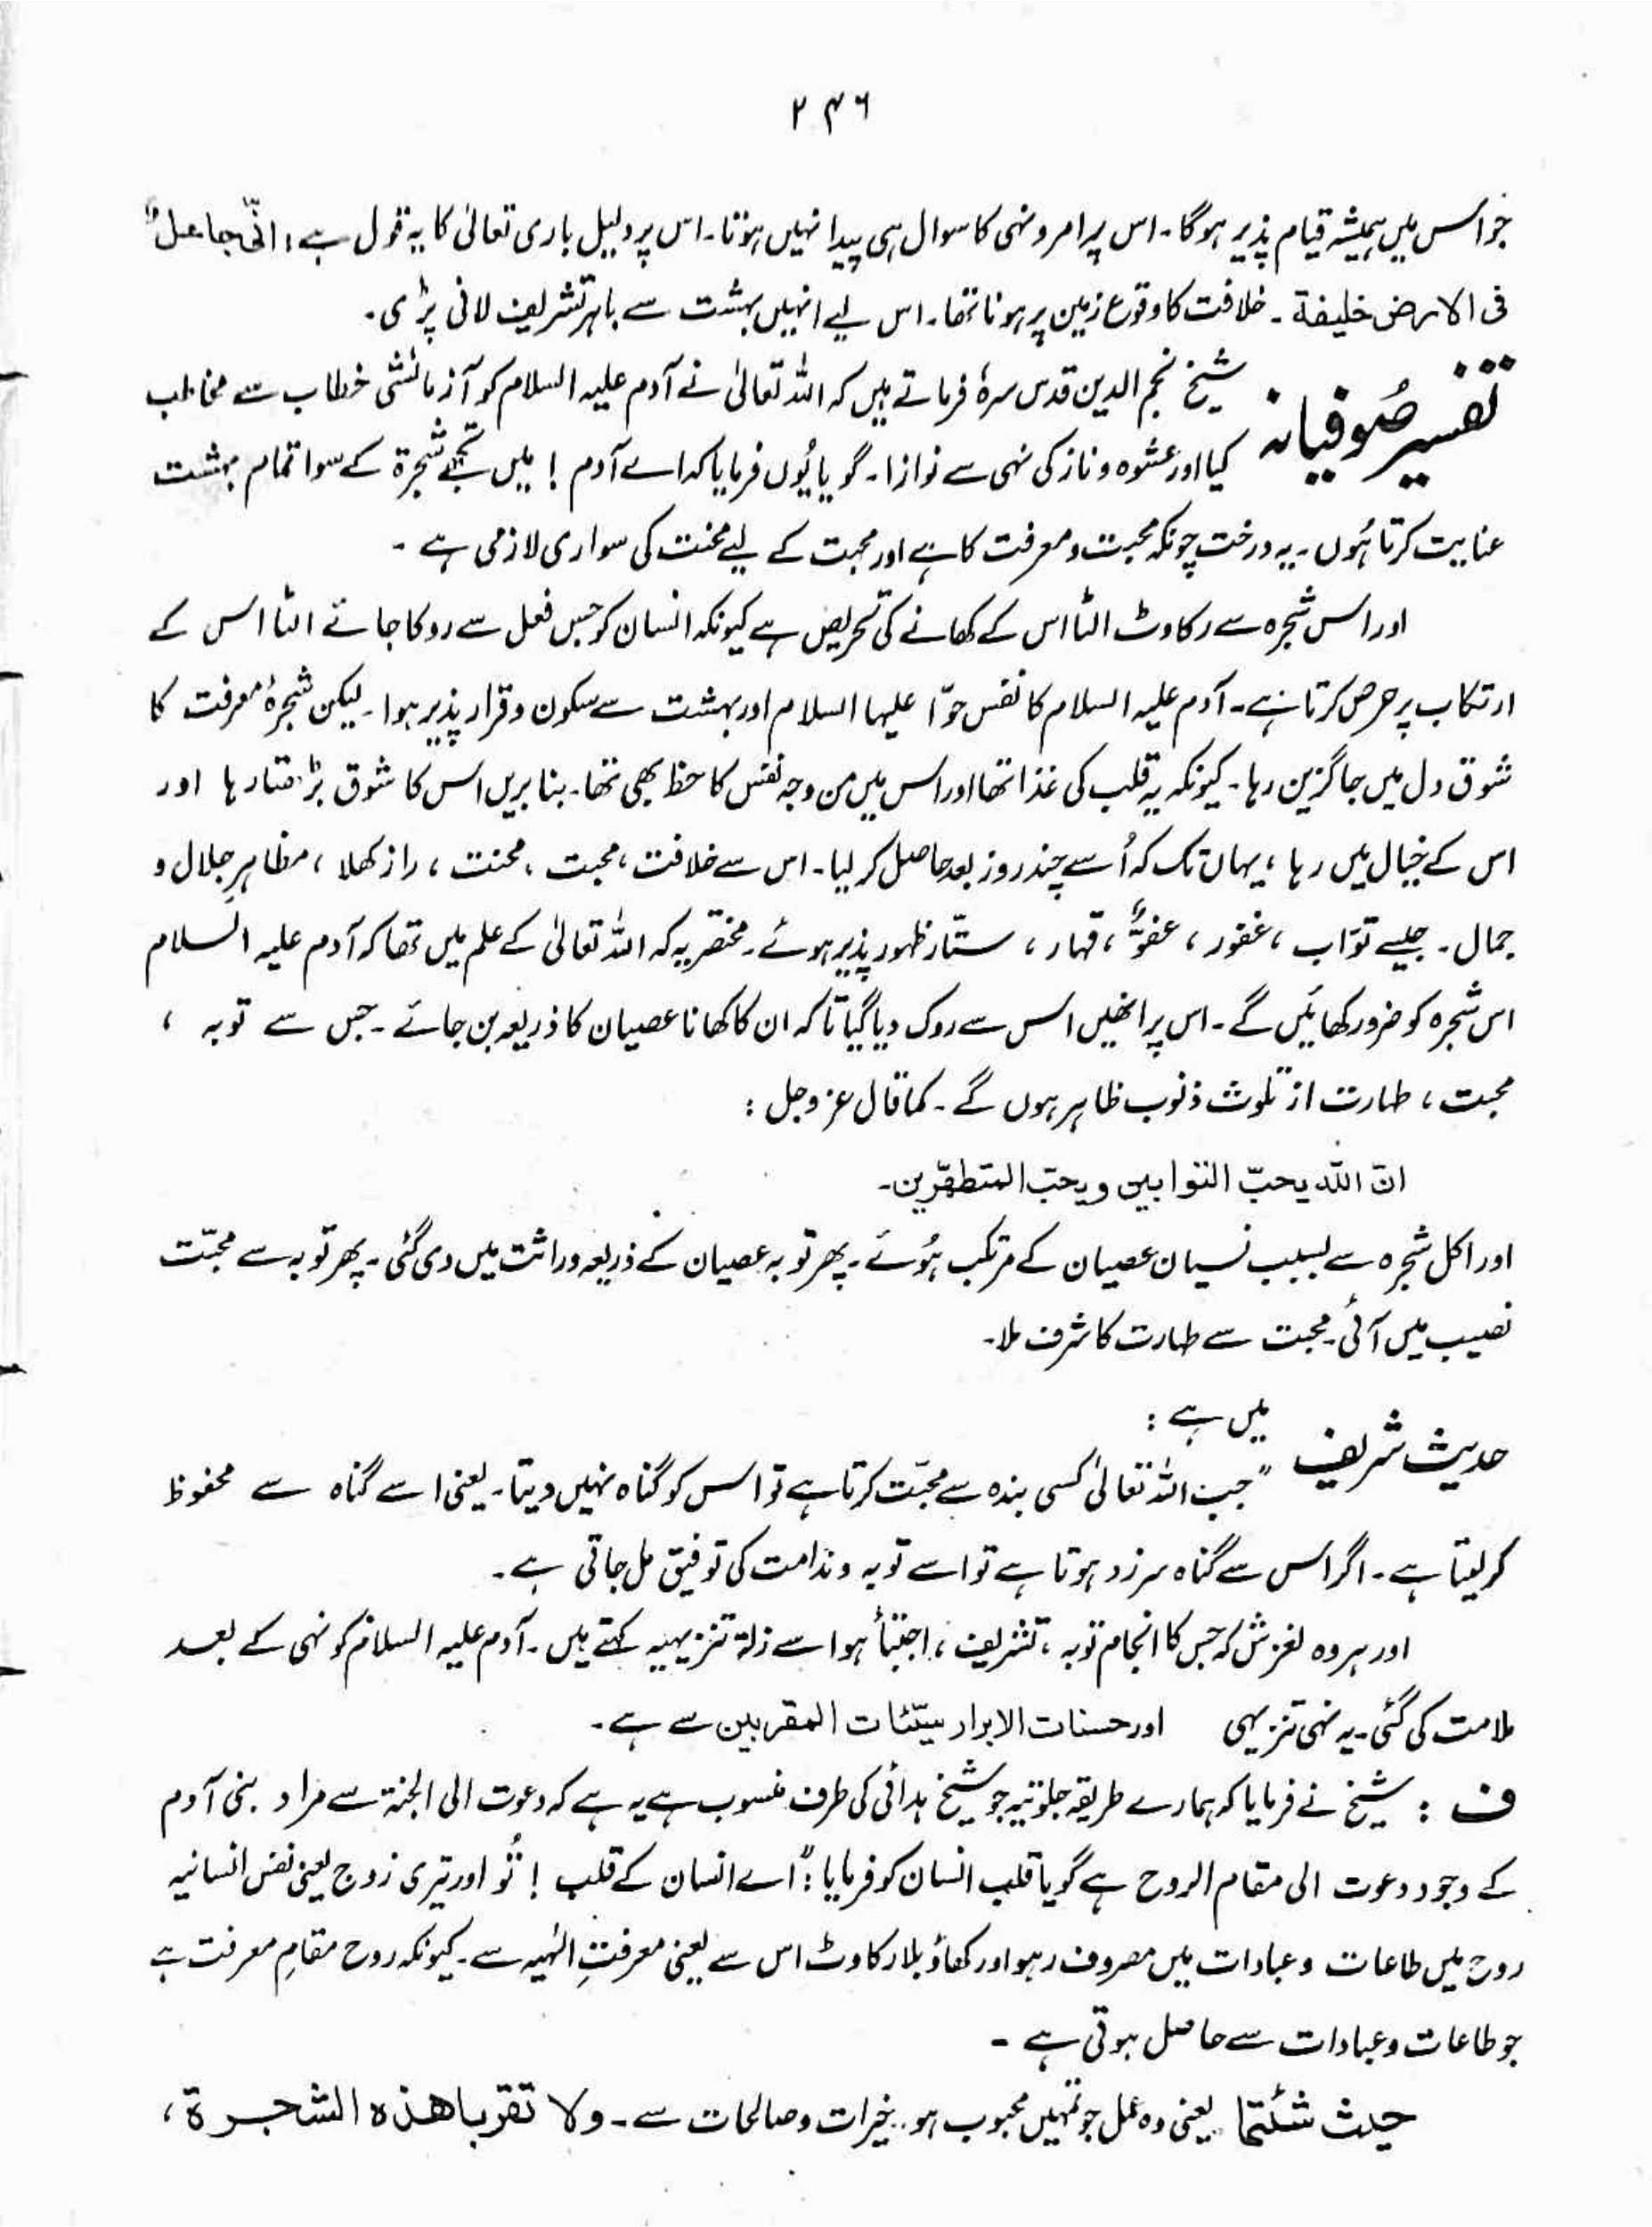 ۲۴۶
جو اس میں ہمیشہ قیام پذیر ہوگا۔ اس پر امر و نہی کا سوال ہی پیدا نہیں ہوتا۔ اس پر دلیل باری تعالیٰ کا یہ قول ہے : انّی جاعلٌ
فی الارض خلیفة ۔ خلافت کا وقوع زمین پر ہونا تھا۔ اس لیے انہیں بہشت سے باہر تشریف لانی پڑی۔
تفسیر صُوفیانہ شیخ نجم الدین قدس سرہٗ فرماتے ہیں کہ اللہ تعالیٰ نے آدم علیہ السلام کو آزمائشی خطاب سے مخاطب
کیا اور عشوہ و ناز کی نہی سے نوازا۔ گویا یُوں فرمایا کہ اے آدم ! میں تجھے شجرۃ کے سوا تمام بہشت
عنایت کرتا ہُوں ۔ یہ درخت چونکہ محبت و معرفت کا ہے اور محبت کے لیے محنت کی سواری لازمی ہے ۔
اور اس شجرہ سے رکاوٹ الٹا اس کے کھانے کی تحریض ہے کیونکہ انسان کو جس فعل سے روکا جائے الٹا اس کے
ارتکاب پر حرص کرتا ہے۔ آدم علیہ السلام کا نفس حوّا علیہا السلام اور بہشت سے سکون و قرار پذیر ہوا ۔ لیکن شجرۂ معرفت کا
شوق دل میں جاگزین رہا ۔ کیونکہ یہ قلب کی غذا تھا اور اس میں من وجہ نفس کا حظ بھی تھا۔ بنا بریں اس کا شوق بڑھتا رہا اور
اس کے خیال میں رہا ، یہاں تک کہ اُسے چند روز بعد حاصل کر لیا۔ اس سے خلافت ، محبت ، محنت ، راز کھلا ، مظاہرِ جلال و
جمال ۔ جیسے توّاب ، غفور ، عفوٌّ ، قہار ، ستّار ظہور پذیر ہوئے ۔ مختصر یہ کہ اللہ تعالیٰ کے علم میں تھا کہ آدم علیہ السلام
اس شجرہ کو ضرور کھائیں گے ۔ اس پر انھیں اس سے روک دیا گیا تاکہ ان کا کھانا عصیان کا ذریعہ بن جائے ۔ جس سے توبہ ،
محبت ، طہارت از تلوث ذنوب ظاہر ہوں گے ۔ کما قال عز و جل :
انّ اللہ یحبّ التوابین و یحبّ المتطهّرین۔
اور اکل شجرہ سے بسبب نسیان عصیان کے مرتکب ہُوئے ۔ پھر توبہ عصیان کے ذریعہ وراثت میں دی گئی ۔ پھر توبہ سے محبّت
نصیب میں آئی۔ محبت سے طہارت کا شرف ملا۔
حدیث شریف میں ہے :
"جب اللہ تعالیٰ کسی بندہ سے محبّت کرتا ہے تو اس کو گناہ نہیں دیتا۔ یعنی اسے گناہ سے محفوظ
کر لیتا ہے ۔ اگر اس سے گناہ سرزد ہوتا ہے تو اسے توبہ و ندامت کی توفیق مل جاتی ہے ۔
اور ہر وہ لغزش کہ جس کا انجام توبہ ، تشریف ، اجتبأ ہو اسے زلۃ تنزیہیہ کہتے ہیں ۔ آدم علیہ السلام کو نہی کے بعد
ملامت کی گئی۔ یہ نہی تنزیہی اور حسنات الابرار سیّئات المقربین سے ہے ۔
ف : شیخ نے فرمایا کہ ہمارے طریقہ جلوتیہ جو شیخ ہدائی کی طرف منسوب ہے یہ ہے کہ دعوت الی الجنۃ سے مراد بنی آدم
کے وجود دعوت الی مقام الروح ہے گویا قلب انسان کو فرمایا : "اے انسان کے قلب ! تُو اور تیری زوج یعنی نفس انسانیہ
روح میں طاعات و عبادات میں مصروف رہو اور کھاؤ بلا رکاوٹ اس سے یعنی معرفتِ الٰہیہ سے ۔ کیونکہ روح مقامِ معرفت ہے
جو طاعات و عبادات سے حاصل ہوتی ہے ۔
حیث شئتما یعنی وہ عمل جو تمہیں محبوب ہو ۔ خیرات و صالحات سے ۔ ولا تقربا ھذہ الشجرۃ ،